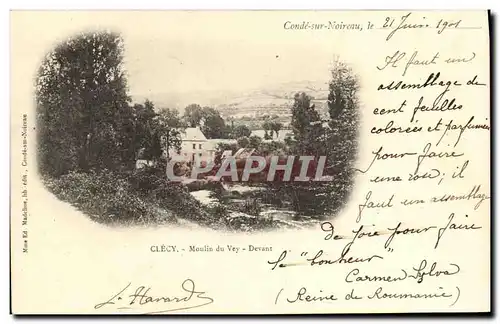 Condé-sur-Noireau, le 21 Juin 1901
Il faut un
assemblage de
cent feuilles
colorées et parfumées
pour faire
une rose; il
faut un assemblage
De joie pour faire
le "bonheur"
Carmen Sylva
(Reine de Roumanie)
CARTE PHILA
CLÉCY. - Moulin du Vey - Devant
L. Havard
Mme Ed. Madeline, lib. édit., Condé-sur-Noireau